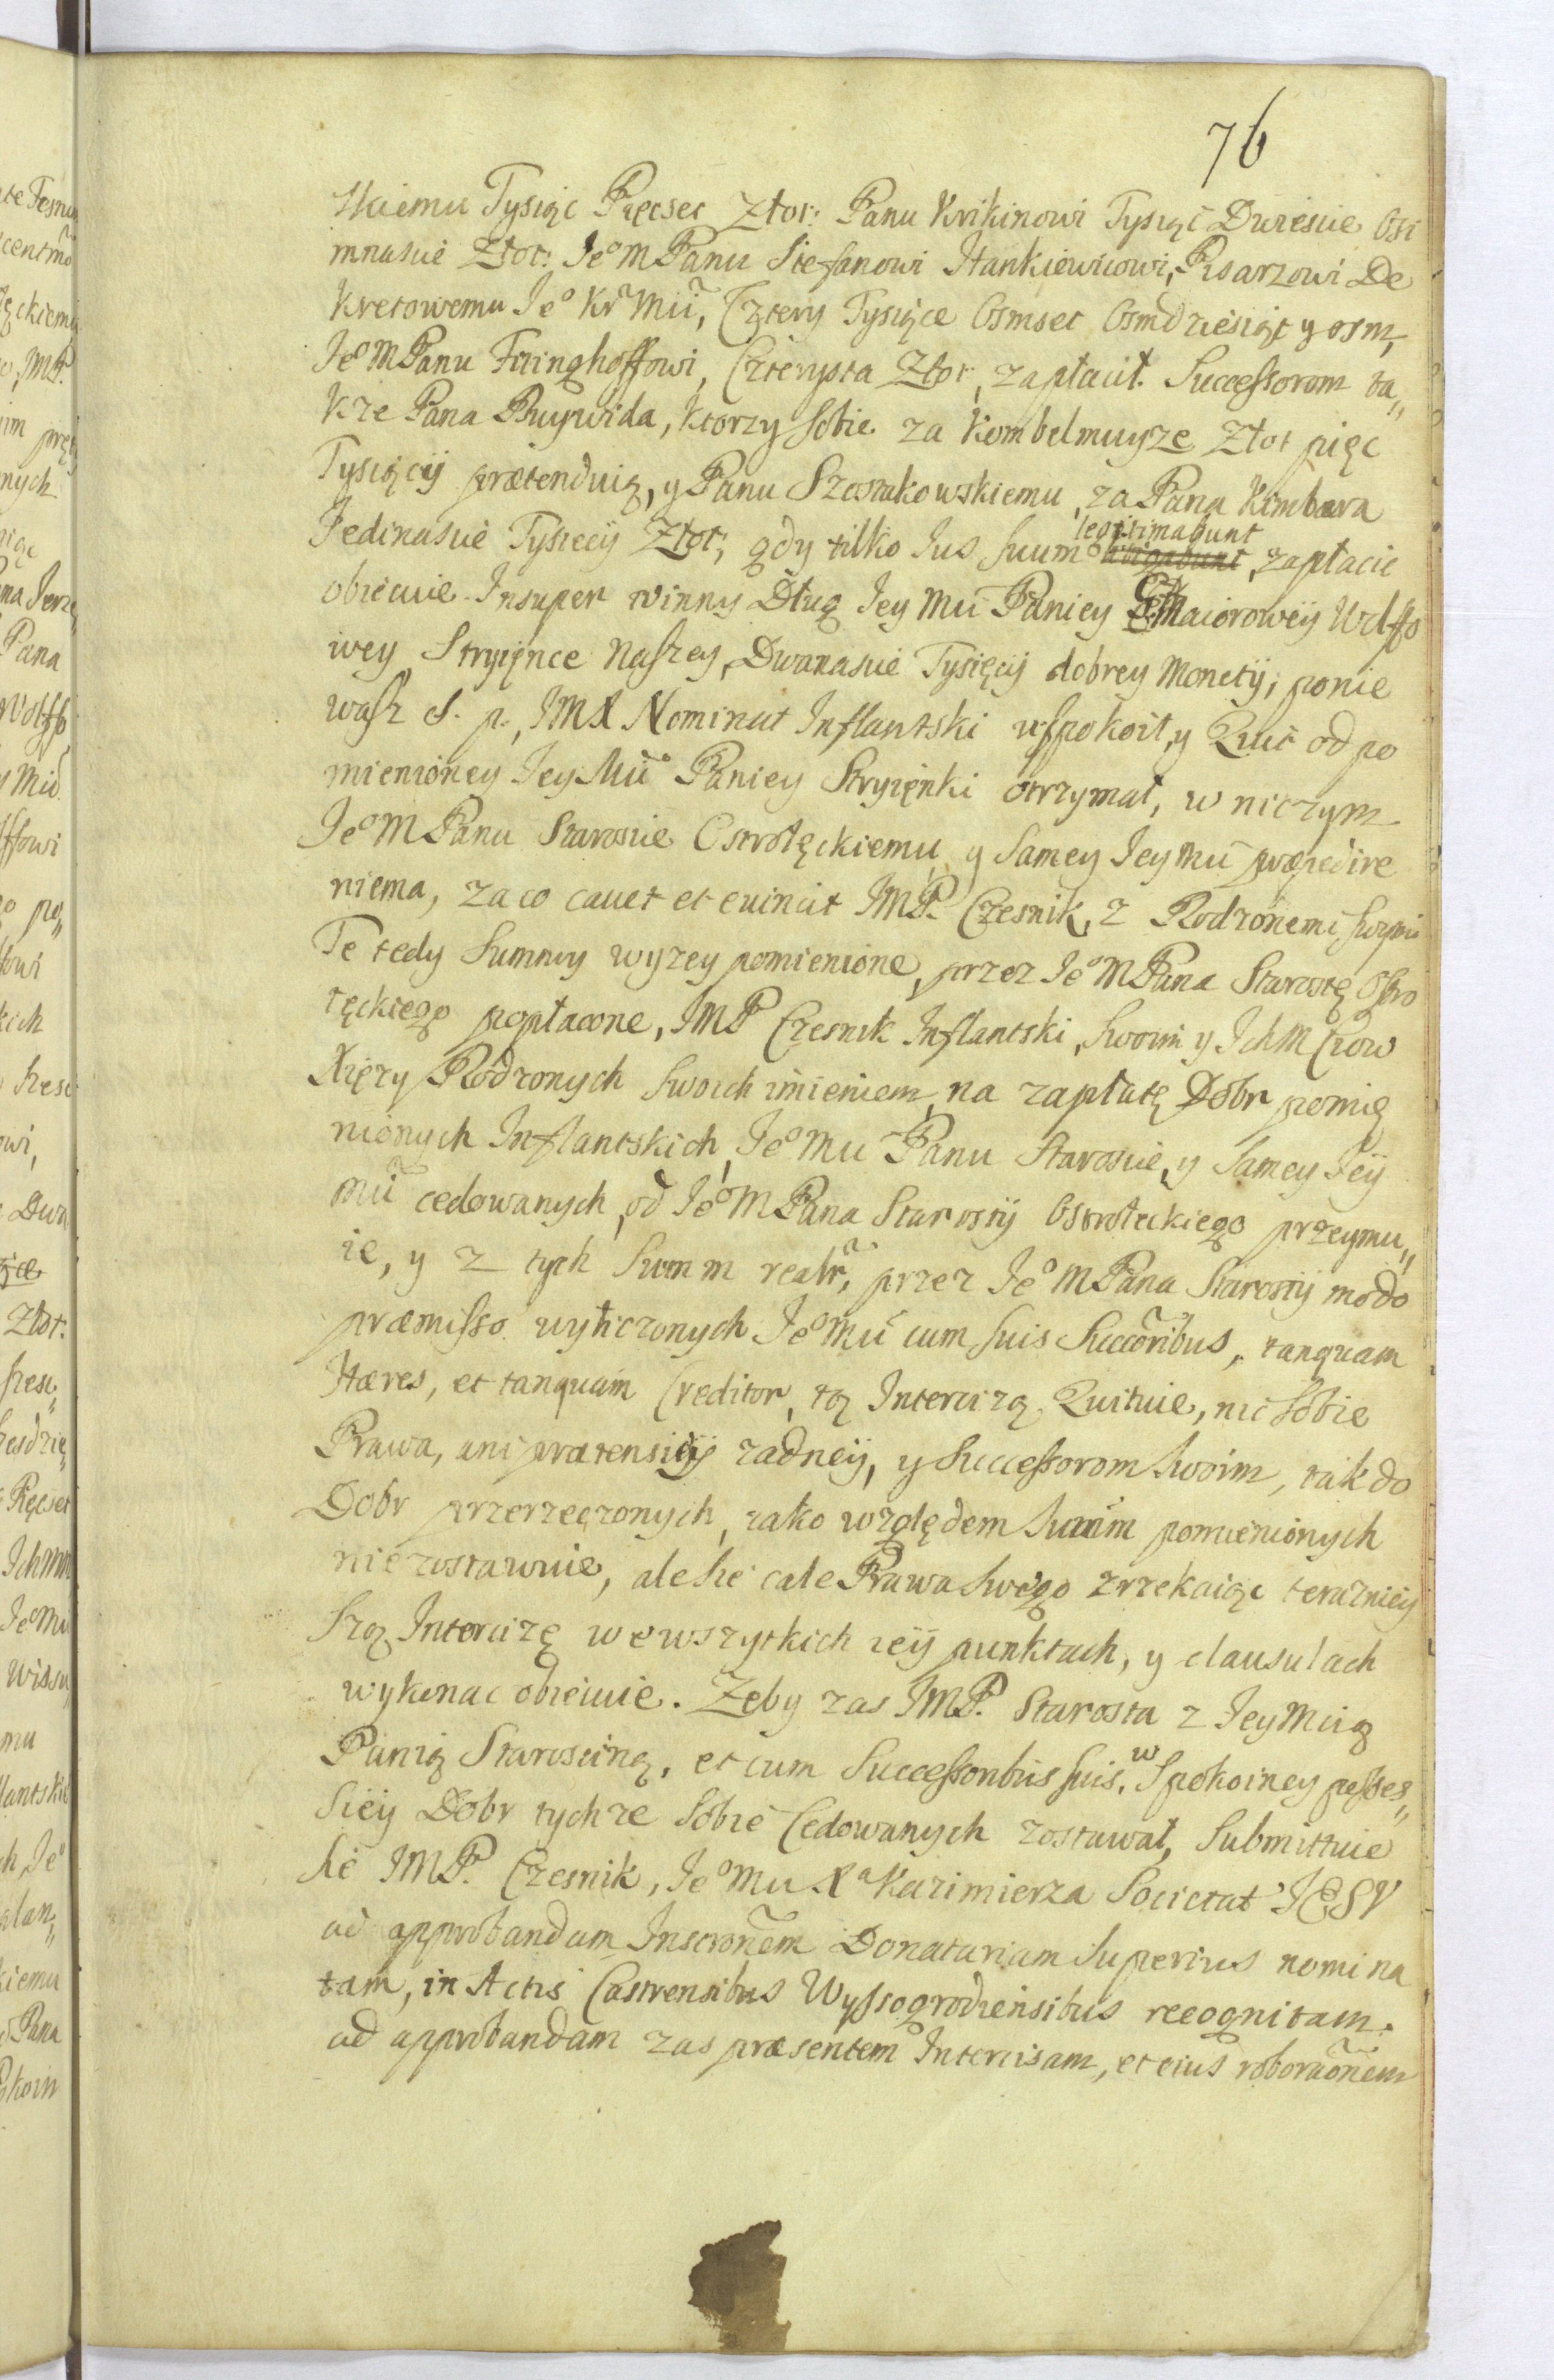 76
skiemu Tysiąc Pięcset Złot: Panu Krikinowi Tysiąc Dwiescie Osi
mnascie Złot: Je° M Panu Stefanowi Hankiewiczowi, Pisarzowi De
kretowemu Je° Kr Mci, Cztery Tysiące Osmset Osmdziesiąt y osm,
Je° M Panu Fitinghoffowi, Czterysta Złot, zapłacił. Successorom ta„
kze Pana Ruywida, ktorzy sobie za Kombelmuyze Złot pięc
Tysięcÿ prætenduią, y Panu Szostakowskiemu, za Pana Kimbara
Jedinascie Tysięcÿ Złot; gdy tilko Jus suum legitimabunt, zapłacic
obiecuie. Insuper winny Dług Jey Mci Paniey Maiorowÿ Wolffo
wey Stryięnce naszey, Dwanascie Tysięcÿ dobrey Monetÿ; ponie
wasz S. p. JMX Nominat Inflantski uspokoił, y Quit od po
mienioney Jey Mci Paniey Stryięnki otrzymał, w niczym
Je° M Panu Staroscie Ostrołęckiemu y Samey Jey Mci præpedire
niema, za co cavet et evincit JMP. Czesnik, z Rodzonemi swymi
Te tedy Summy wyzey pomienione, przez Je° M Pana Starostę Ostro
łęckiego popłacone, JMP Czesnik Inflantski, Swoim y Ich M Ciow
Xięzy Rodzonych swoich imieniem, na zapłatę Dobr pomię
nionych Inflantskich, Je° Mci Panu Staroscie, y Samey Jeÿ
Mci cedowanych, od Je° M Pana Starostÿ Ostrołeckiego przeymu„
ie, y z tych Summ realr, przez Je° M Pana Starostÿ modo
præmisso wyliczonych Je° Mci cum suis Succoribus, tanquam
Hæres, et tanquam Creditor, tą Intercizą Quituie, nic sobie
Prawa, ani prætensiÿ zadneÿ, y Successorom Swoim, tak do
Dobr przerzeczonych, iako względem Summ pomienionych
niezostawuie, ale sie cale Prawa Swego zrzekaiąc teraznieÿ
szą Intercizę we wszytkich ieÿ punktach, y clausulach
wykonac obiecuie. Zeby zas JMP. Starosta z Jey Mcią
Panią Starosciną, et cum Successoribus suis, w Spokoiney posses„
sieÿ Dobr tychze Sobie Cedowanych zostawał, Submittuie
sie JMP. Czesnik, Je° Mci Xa Kazimierza Societat' JESV
ad approbandam Inscronem Donatariam Superius nomina
tam, in Actis Castrensibus Wyssogrodiensibus recognitam.
ad approbandam zas præsentem Intercisam, et eius roboraonem